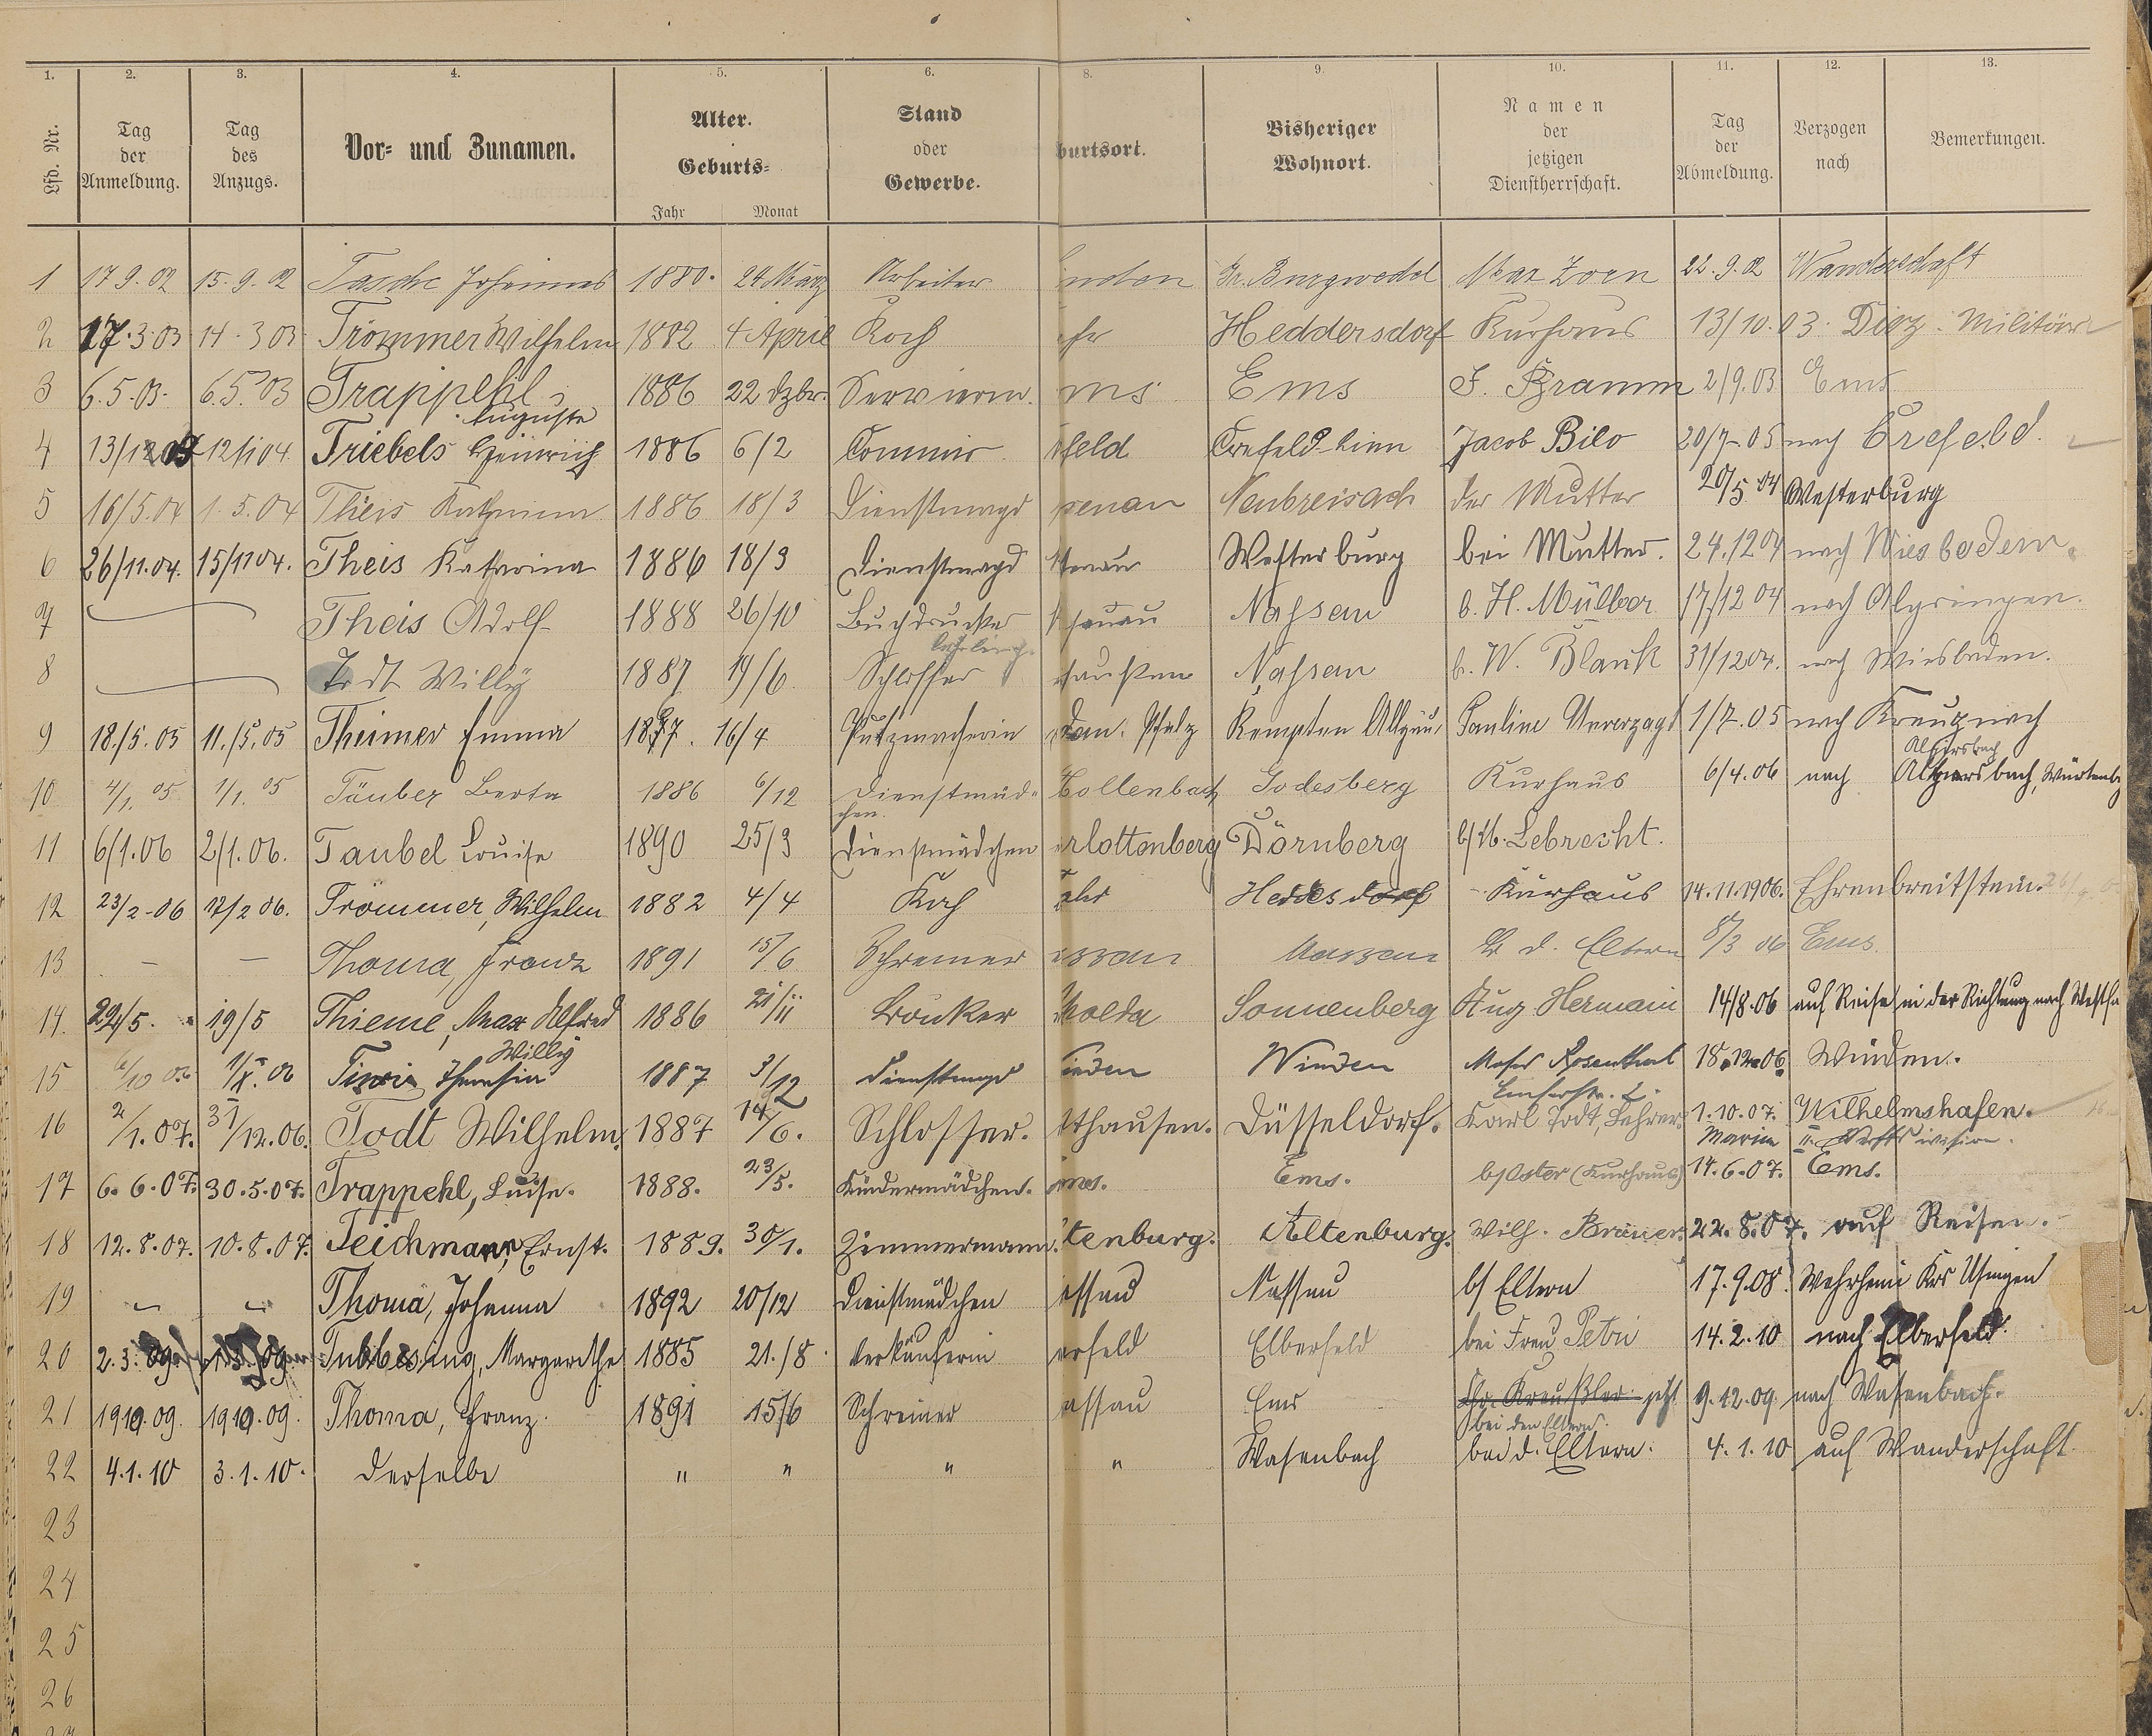 1. 2. 3. 4. 5. 6. 8. 9. 10. 11. 12. 13.
Lfd. Nr. Tag der Anmeldung. Tag des Anzugs. Vor- und Zunamen. Alter. Geburts- Jahr Monat Stand oder Gewerbe. burtsort. Bisheriger Wohnort. Namen der jetzigen Dienstherrschaft. Tag der Abmeldung. Verzogen nach Bemerkungen.
1 17 9.02 15.9.02 Tasche Johannes 1880. 24 März Arbeiter Gr. Burgwedel Max Zorn 22.9.02 Wanderschaft
2 17.3.03 14.3 03 Trömmer Wilhelm 1882 4 April Koch ehr Heddersdorf Kurhaus 13/10.03. Diez. Militär
3 6.5.03. 6.5.03 Trappehl, Auguste 1886 22 Dzbr. Servierm. ms. Ems J. Bramm 2/9.03 Ems
4 12/1 04 Triebels Heinrich 1886 6/2 Commis feld Crefeld-Linn Jacob Bilo 20/7-05 nach Crefeld.
5 16/5.04 1.5.04 Theis Katharina 1886 18/3 Dienstmagd senau Neubreisach der Mutter 20/5.04 Westerburg
6 26/11.04. 15/11 04. Theis Katharina 1886 18/3 Dienstmagd Westerburg bei Mutter. 24.12 04 nach Wiesbaden.
7 Theis Adolf 1888 26/10 Buchdrucker lehrling Nassau b. H. Müller 17/12 04 nach Algringen.
8 Todt Willy 1887 14/6 Schlosser hausen Nassau b. W. Blank 31/12 04. nach Wiesbaden.
9 18./5.05 11./5.05 Theimer Emma 1887. 16/4 Putzmacherin dau. Pfalz Kempten Allgäu, Pauline Unverzagt 1/7.05 nach Kreuznach
10 4/1. 05 1/1. 05 Täuber Berta 1886 6/12 Dienstmädchen Hollenbach Godesberg Kurhaus 6/4.06 nach Alpirsbach, Würtenbg
11 6/1.06 2/1.06. Taubel Louise 1890 25/3 Dienstmädchen rlottenberg Dörnberg b/ M. Lebrecht.
12 23/2-06 17/2 06. Trömmer, Wilhelm 1882 4/4 Koch Heddesdorf Kurhaus 14.11.1906. Ehrenbreitstein.
13 — — Thoma, Franz 1891 15/6 Schreiner assau Nassau b. d. Eltern 8/3 06 Ems.
14. 22/5. 19/5 Thieme, Max Alfred Willy 1886 21/11 Sonnenberg Aug Hermani 14/8.06 auf Reise in der Richtung nach Westfa
15 6/10 06 1/X.06 Theresia 1887 3/12 Dienstmagd inden Winden Moses Rosenthal Emserstr. 18.12.06. Winden.
16 2/1.07. 31/12.06. Todt Wilhelm. 1887 14/6. Schlosser. thausen. Düsseldorf. Karl Todt, Lehrer. 1.10.07. Marine Wilhelmshafen. II. Werftdivision.
17 6.6.07. 30.5.07. Trappehl, Luise. 1888. 23/5. Kindermädchen. ms. Ems. b/Oster (Kurhaus) 14.6.07. Ems.
18 12.8.07. 10.8.07. Teichmann, Ernst. 1889. 30/1. Zimmermann. ltenburg. Altenburg. Wilh. Bräuer. 22.8.07. auf Reisen.
19 Thoma, Johanna 1892 20/12 Dienstmädchen assau Nassau b/ Eltern 17.9.08. Wehrheim Krs Usingen
20 2.3.09. 1.3.09. Tubbesing, Margarethe 1885 21./8. Verkäuferin erfeld Elberfeld bei Frau Petri 14.2.10 nach Elberfeld.
21 1910.09. 1910.09. Thoma, Franz. 1891 15/6 Schreiner assau Ems Chr. Kreußler jetzt bei den Eltern. 9.12.09 nach Wasenbach.
22 4.1.10 3.1.10. derselbe " " " " Wasenbach bei d. Eltern. 4.1.10 auf Wanderschaft.
23
24
25
26